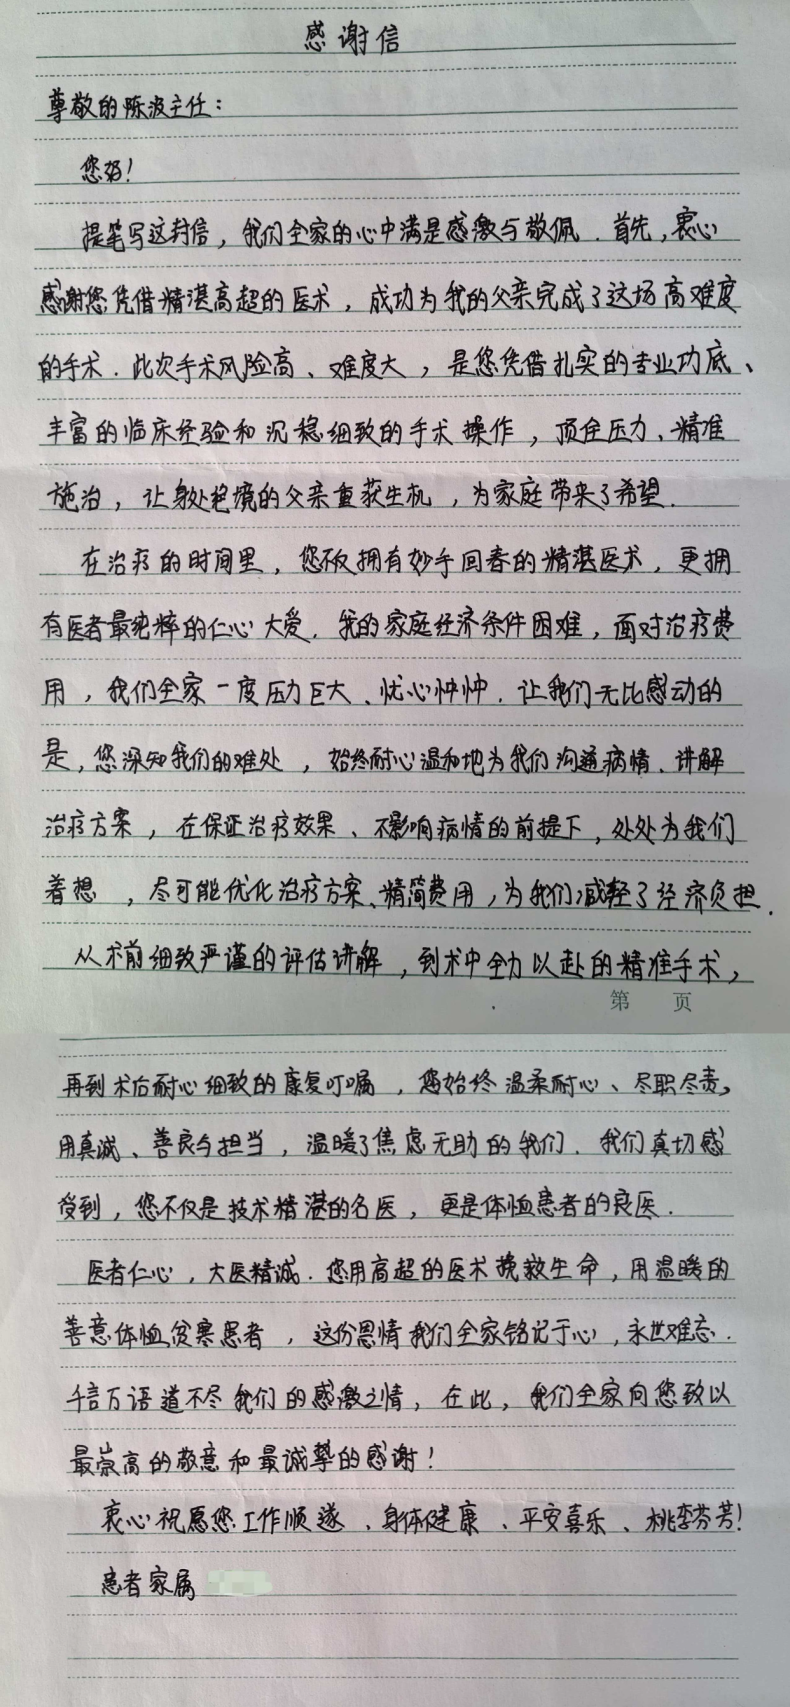 感谢信
尊敬的陈波主任：
您好！
提笔写这封信，我们全家的心中满是感激与敬佩．首先，衷心
感谢您凭借精湛高超的医术，成功为我的父亲完成了这场高难度
的手术．此次手术风险高、难度大，是您凭借扎实的专业功底、
丰富的临床经验和沉稳细致的手术操作，顶住压力、精准
施治，让身处绝境的父亲重获生机，为家庭带来了希望．
在治疗的时间里，您不仅拥有妙手回春的精湛医术，更拥
有医者最纯粹的仁心大爱．我的家庭经济条件困难，面对治疗费
用，我们全家一度压力巨大、忧心忡忡．让我们无比感动的
是，您深知我们的难处，始终耐心温和地为我们沟通病情、讲解
治疗方案，在保证治疗效果、不影响病情的前提下，处处为我们
着想，尽可能优化治疗方案、精简费用，为我们减轻了经济负担．
从术前细致严谨的评估讲解，到术中全力以赴的精准手术，
第 页
再到术后耐心细致的康复叮嘱，您始终温柔耐心、尽职尽责，
用真诚、善良与担当，温暖了焦虑无助的我们．我们真切感
受到，您不仅是技术精湛的名医，更是体恤患者的良医．
医者仁心，大医精诚．您用高超的医术挽救生命，用温暖的
善意体恤贫寒患者，这份恩情我们全家铭记于心，永世难忘．
千言万语道不尽我们的感激之情，在此，我们全家向您致以
最崇高的敬意和最诚挚的感谢！
衷心祝愿您工作顺遂、身体健康、平安喜乐、桃李芬芳！
患者家属